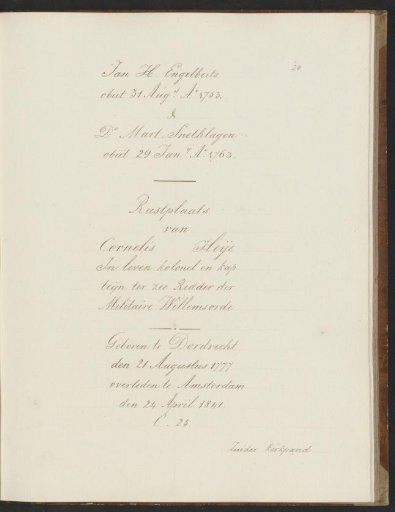 20
Jan H. Engelberts
obiit 31 Augs. Ao 1753.
&
Ds. Mart. Snethlagen
obiit 29 Jany. Ao 1763.
Rustplaats
van
Cornelis Heije
In leven kolonel en kap
teijn ter zee Ridder der
Militaire Willemsorde
Geboren te Dordrecht
den 21 Augustus 1777
overleden te Amsterdam
den 24 April 1841.
C. 23
Zuider Kerkpand